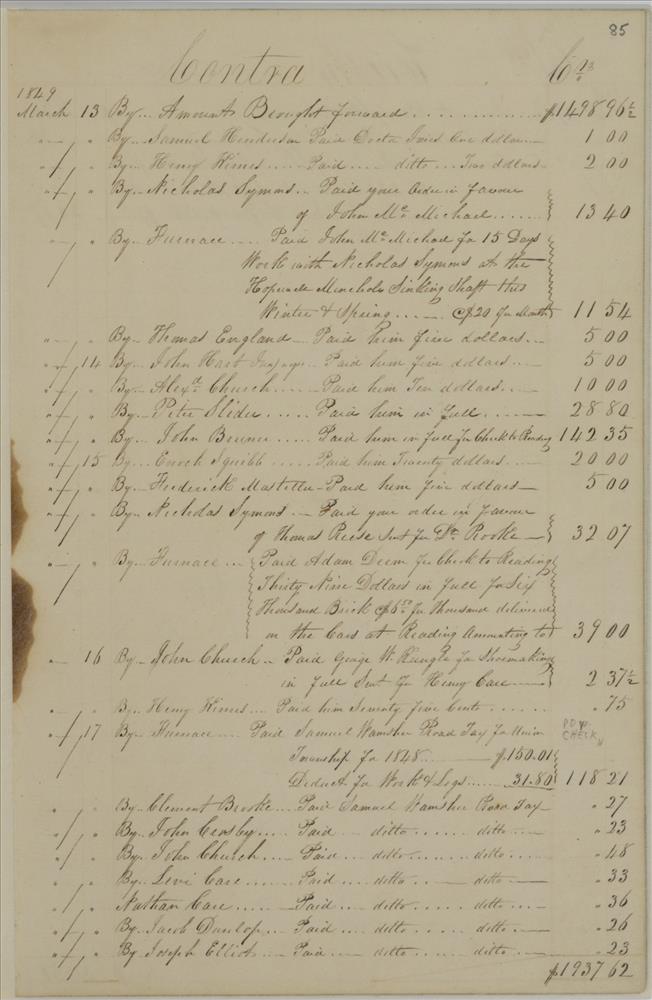 85
Contra Crs
1849
March 13 By... Amount Brought forward ............ $1498 96½
" " By... Samuel Henderson Paid Doctr Jones One dollar — 1 00
" " By... Henry Himes .... Paid .... ditto ... Two dollars — 2 00
" " By... Nicholas Symons .. Paid your order in favour
of John McMichael ...... 13 40
" " By... Furnace .... Paid John McMichael for 15 Days
Work with Nicholas Symons at the
Hopewell Sinking Shaft this
Winter & Spring ..... @ $20 per Month 11 54
" " By... Thomas England — Paid him five dollars .. — 5 00
" 14 By... John Hart .. Paid him five dollars ... — 5 00
" " By... Alexd Church ..... Paid him Ten dollars .... — 10 00
" " By... Peter Slider ..... Paid him in full ..... — 28 80
" " By... John Benner ..... Paid him in full per Check to Reading 142 35
" 15 By... Enoch Squibb ..... Paid him Twenty dollars .... — 20 00
" " By... Frederick Mostellar — Paid him five dollars — 5 00
" " By... Nicholas Symons — Paid your order in favour
of Thomas Reese Sent per Dr. Rooke — 32 07
" " By... Furnace ... Paid Adam Deem per Check to Reading
Thirty Nine Dollars in full for Six
Thousand Brick @ 6 50 per Thousand delivered
on the Cars at Reading Amounting to 39 00
" 16 By... John Church .. Paid George W. for Shoemaking
in full Sent per Henry Care — 2 37½
" " By... Henry Himes .... Paid him Seventy five Cents ...... " 75
" 17 By... Furnace .... Paid Samuel Wamsher Road Tax for Union
Township for 1848 ...... $150.01
Deduct for Work & Logs ...... 31.80 118 21
CHECK
" " By... Clement Brooke .... Paid Samuel Wamsher Road Tax — " 27
" " By... John Crosby .... Paid .... ditto ..... ditto .... — " 23
" " By... John Church .... Paid .... ditto ..... ditto .... — " 48
" " By... Levi Care ...... Paid .... ditto .. — ditto — " 33
" " Nathan Care ..... Paid .... ditto ..... ditto ... — " 36
" " By... Jacob Dunlop ... Paid .... ditto ..... ditto — " 26
" " By... Joseph Elliott .. Paid .... ditto ..... ditto — " 23
$1937 62